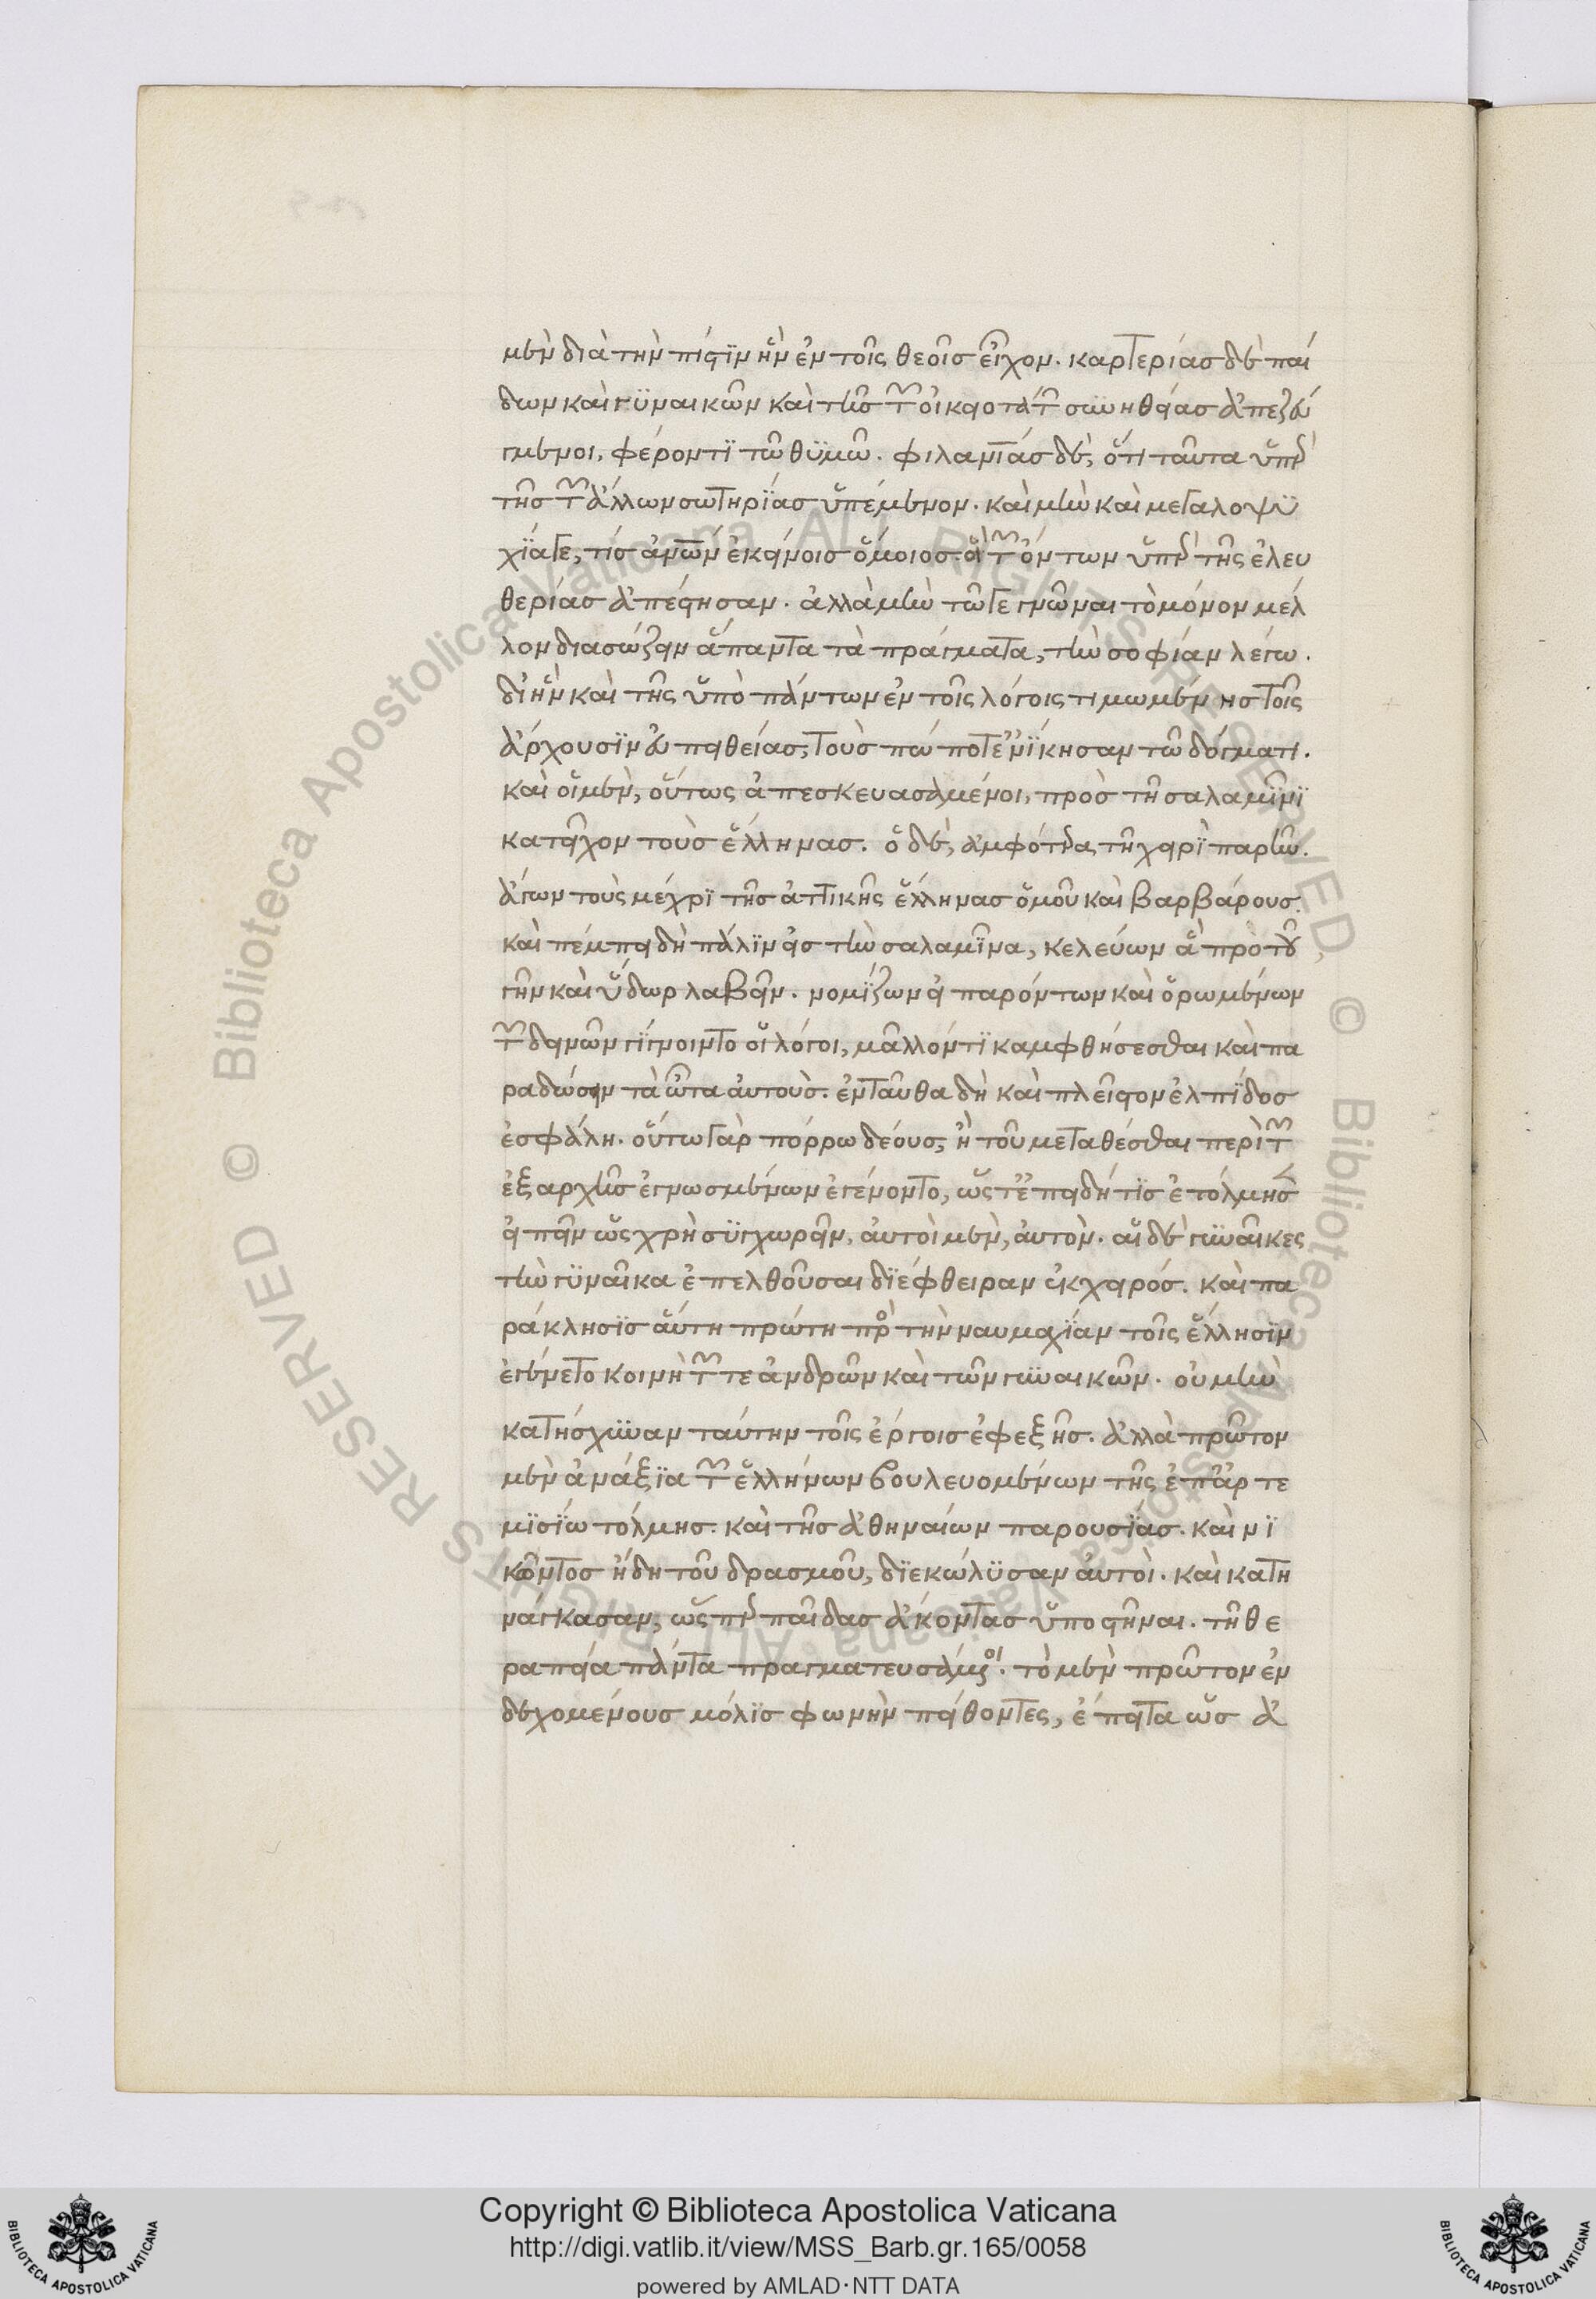 μὲν διὰ τὴν πίστϊν ἣν ἐν τοῖς θεοῖσ εἶχον. καρτερίασ δὲ παί
δων καὶ γϋναικῶν καὶ τῆσ τῶν οἰκοτάτων συνηθείασ ἀπεζευ
γμένοι, φέροντϊ τῶ θϋμῶ. φιλανίασ δὲ, ὅτι ταῦτα ὑπὲρ
τῆσ τῶν ἄλλων σωτηρϊάσ ὑπέμενον. καὶ μὴν καὶ μεγαλοψϋ
χϊά γε, τίσ ἀνῶν ἐκείνοισ ὅμοιοσ. οἳ τῶν ὄντων ὑπὲρ τῆς ἐλευ
θερίασ ἀπέστησαν. ἀλλὰ μὴν τῶ γε γνῶναι τὸ μόνον μέλ
λον διασώζειν ἅπαντα τὰ πράγματα, τὴν σοφίαν λέγω.
δι' ἣν καὶ τῆς ὑπὸ πάντων ἐν τοῖς λόγοις τιμωμένησ τοῖς
ἄρχουσϊν εὐπειθείασ, τοὺσ πώποτε ἐνίκησαν τῶ δόγματι.
καὶ οἱ μὲν, οὕτως ἀπεσκευασάμένοι, πρὸσ τῆ σαλαμῖνϊ
κατεῖχον τοὺσ ἕλλήνασ. ὁ δὲ, ἀμφότερας τῆ χειρῒ παρῆν.
ἄγων τοὺς μέχρϊ τῆσ ἀττικῆς ἕλλήνασ ὁμοῦ καὶ βαρβάρουσ.
καὶ πέμπει δὴ πάλϊν εἰσ τὴν σαλαμῖνα, κελεύων ἃ πρὸ τοῦ
γῆν καὶ ὕδωρ λαβεῖν. νομίζων εἰ παρόντων καὶ ὁρωμένων
τῶν δεινῶν γίγνοιντο οἱ λόγοι, μᾶλλόντϊ καμφθήσεσθαι καὶ πα
ραδώσειν τὰ ὦτα αὐτοὺσ. ἐνταῦθα δὴ καὶ πλεῖστον ἐλπίδοσ
ἐσφάλη. οὕτω γὰρ πόρρω δέουσ, ἢ τοῦ μεταθέσθαι περὶ τῶν
ἐξαρχῆσ ἐγνωσμένων ἐγένοντο, ὥς τε ἐπειδή τϊσ ἐτόλμησεν
εἰπεῖν ὡς χρὴ σϋγχωρεῖν, αὐτοὶ μὲν, αὐτὸν. αἱ δὲ γϋναῖκες
τὴν γϋναῖκα ἐπελθοῦσαι δϊέφθειραν ἐκ χειρόσ. καὶ πα
ράκλησϊσ αὕτη πρώτη πρὸ τὴν ναυμαχϊάν τοῖς ἕλλησϊν
ἐγένετο κοινὴ τῶν τε ἀνδρῶν καὶ τῶν γϋναικῶν. οὐ μὴν
κατήσχϋναν ταύτην τοῖς ἔργοισ ἐφεξῆσ. ἀλλὰ πρῶτον
μὲν ἀνάξϊα τῶν ἑλλήνων βουλευομένων τῆς ἐπ' ἀρτε
μϊσϊῶ τόλμησ. καὶ τῆσ ἀθηναίων παρουσϊάσ. καὶ νϊ
κῶντοσ ἤδη τοῦ δρασμοῦ, δϊεκώλϋσαν αὐτοὶ. καὶ κατη
νάγκασαν, ὥς περ παῖδασ ἄκοντασ ὑποστῆναι. τῆ θε
ραπεία πάντα πραγματευσάμενοι. τὸ μὲν πρῶτον ἐν
δεχομένουσ μόλϊσ φωνὴν πείθοντες, ἔπειτα ὡσ ἀ